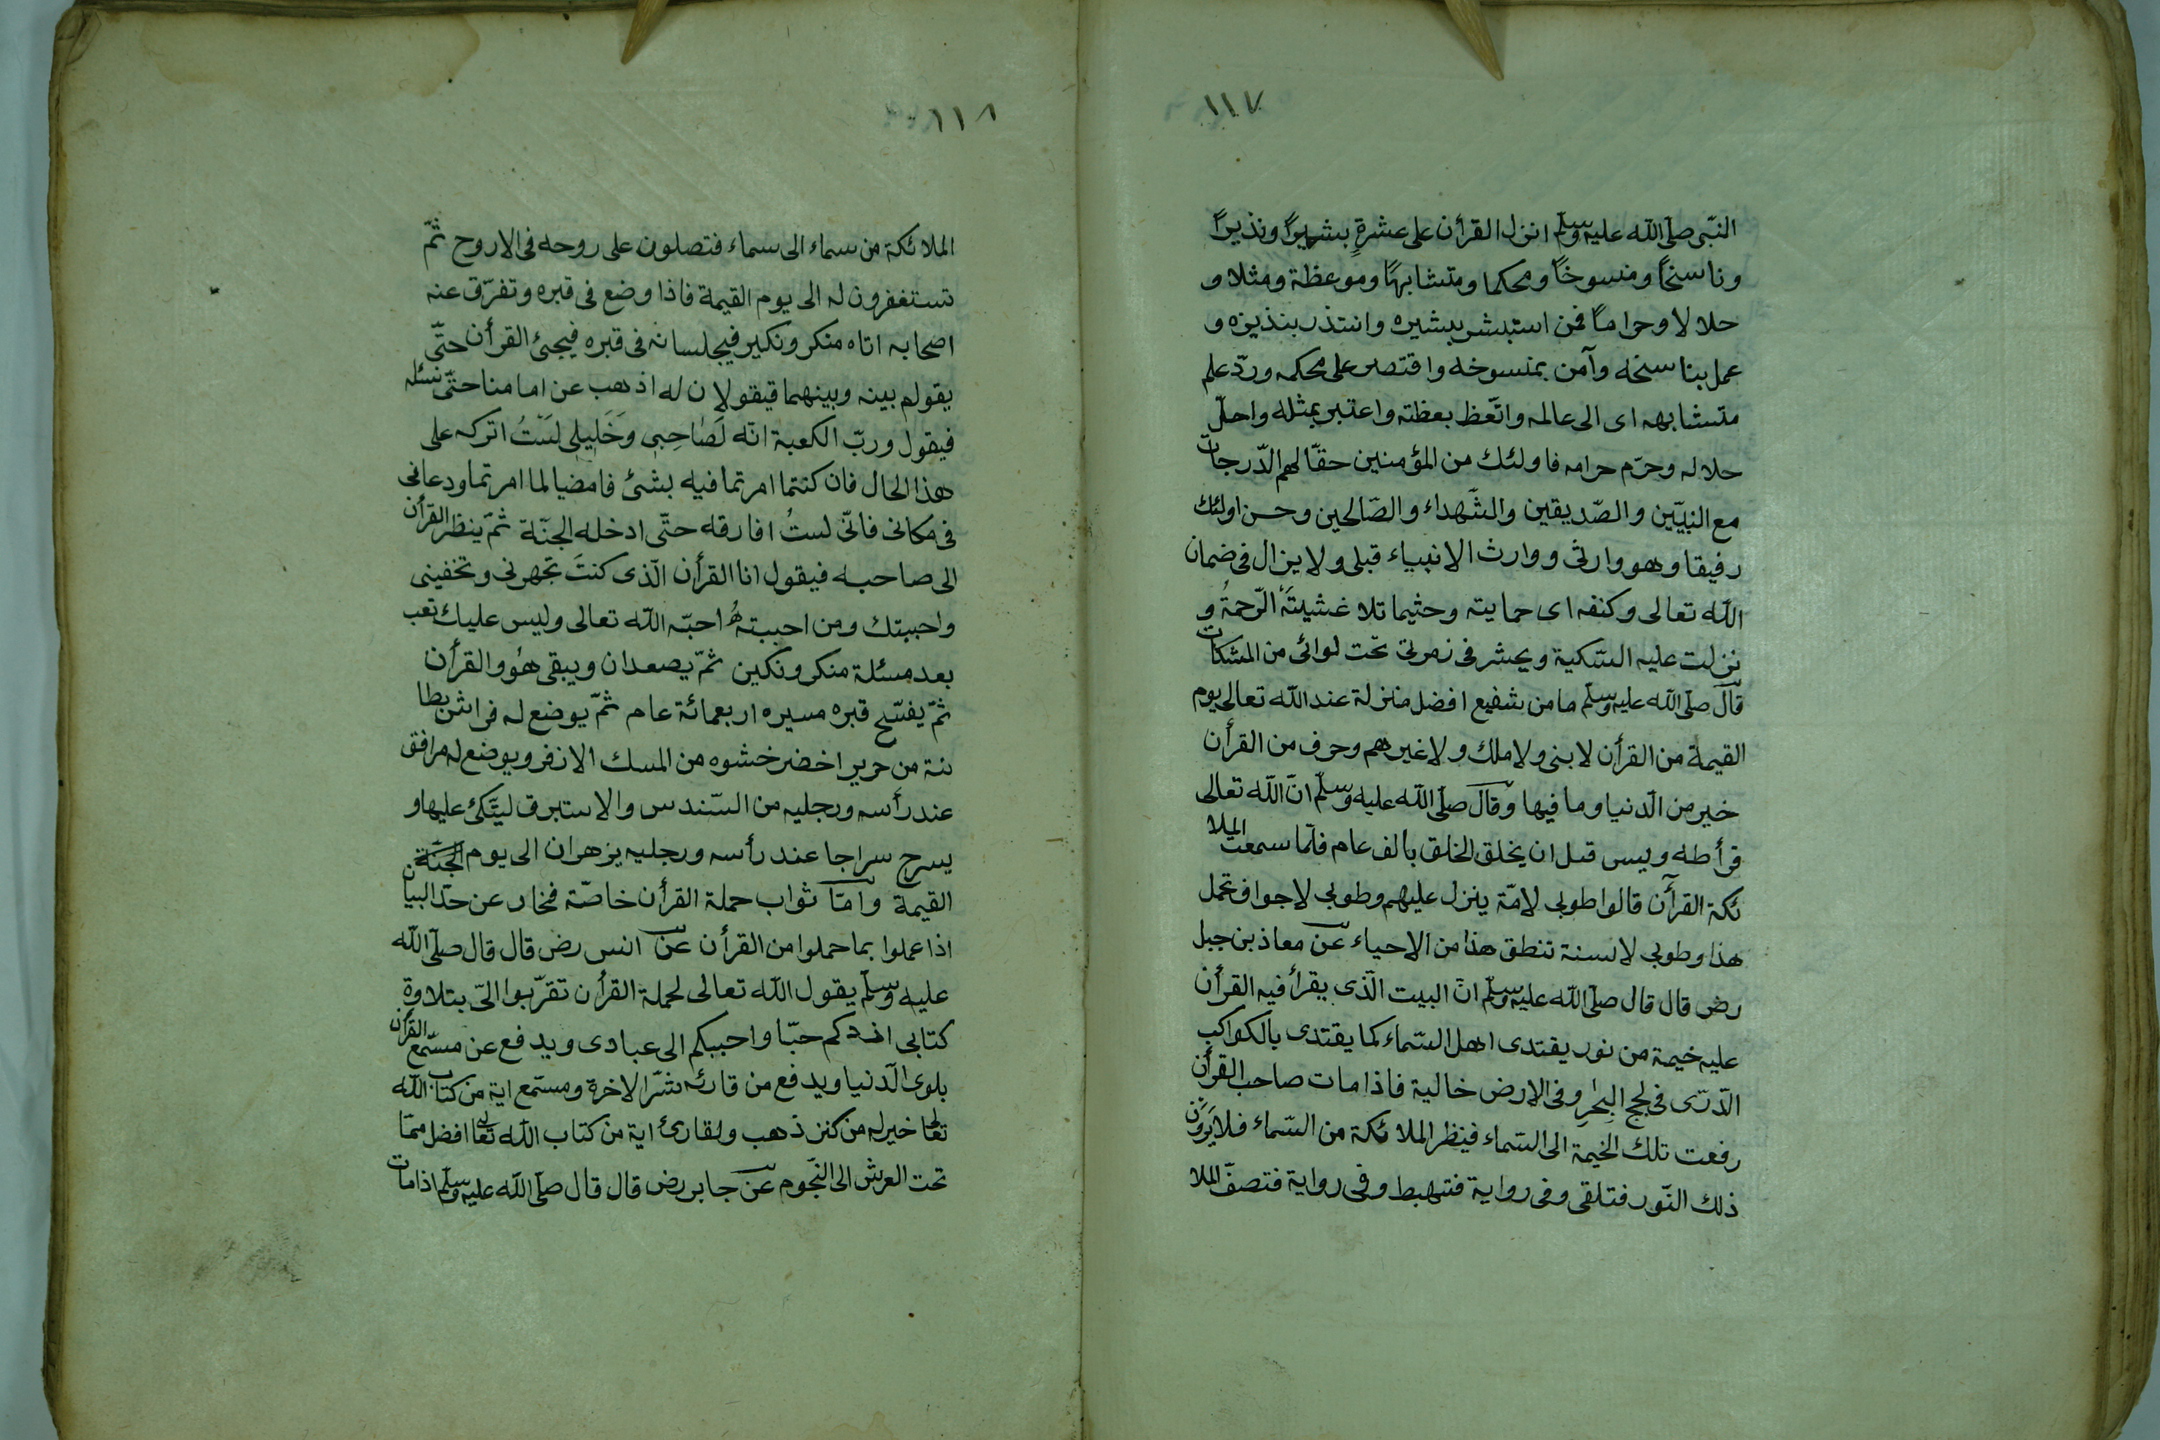 ١١٧
النّبى صلّى الله عليه وسلّم انزل القرأن على عشرةٍ بشيراً ونذيراً
وناسخاً ومنسوخاً ومحكما ومتشابهًا وموعظة ومثلا و
حلالا وحراماً فمن استبشر ببشيره وانتذر بنذيره و
عمل بناسخه وآمن بمنسوخه واقتصر على محكمه وردّ علم
متشابهه اى الى عالمه واتّعظ بعظته واعتبر بمثله واحلّ
حلاله وحرّم حرامه فاولئك من المؤمنين حقّا لهم الدّرجات
مع النبيّين والصّديقين والشّهداء والصّالحين وحسن اولئك
رفيقا وهو وارثى ووارث الانبياء قبلى ولا يزال فى ضمان
الله تعالى وكنفه اى حمايته وحثيما تلا غشيته الرّحمةُ و
نزلت عليه السّكية ويحشر فى زمرتى تحت لوائى من المشكات
قال صلّى الله عليه وسلّم ما من شفيع افضل منزلة عند الله تعالى يوم
القيمة من القرأن لا بنى ولا ملك ولا غيرهم وحرف من القرأن
خير من الدّنيا وما فيها وقال صلّى الله عليه وسلّم انّ الله تعالى
قرأ طه ويس قبل ان يخلق الخلق بالف عام فلمّا سمعت الملا
ئكة القرأن قالوا طوبى لامّة ينزل عليهم وطوبى لاجواف تحمل
هذا وطوبى لالسنة تنطق هذا من الاحياء عن معاذ بن جبل
رض قال قال صلّى الله عليه وسلّم انّ البيت الّذى يقرأ فيه القرأن
عليه خيمة من نور يقتدى اهل السّماء كما يقتدى بالكواكب
الدّرّى فى لجج البحرِ وفى الارض خالية فاذا مات صاحب القرأن
رفعت تلك الخيمة الى السّماء فينظر الملائكة من السّماء فلا يَرَوْن
ذلك النّور فتلقى وفى رواية فتهبط وفى رواية فتصفّ الملا
١١٨
الملائكة من سماء الى سماء فتصلون على روحه فى الاروح ثمّ
تستغفرون له الى يوم القيمة فاذا وضع فى قبره وتفرّق عنه
اصحابه اتاه منكر ونكير فيجلسانه فى قبره فيجئ القرأن حتّى
يقوم بينه وبينهما فيقولان له اذهب عن امامنا حتّى نسئله
فيقول وربّ الكعبة انّه لَصَاحِبِى وَخَلِيلِى لسْتُ اتركه على
هذا الحال فان كنتما امرتما فيه بشئ فامضيا لما امرتما ودعانى
فى مكانى فانّى لستُ افارقه حتّى ادخله الجنّة ثمّ ينظر القرأن
الى صاحبه فيقول انا القرأن الّذى كنتَ تجهرنى وتخفينى
واحببتك ومن احببته احبّه الله تعالى وليس عليك تعب
بعد مسئلة منكر ونكير ثمّ يصعدان ويبقى هو والقرأن
ثمّ يفتح قبره مسيره اربعمائة عام ثمّ يوضع له فراش بطا
ئنة من حرير اخضر خشوه من المسك الاذفر ويوضع له مرافق
عند رأسه ورجليه من السّندس والاستبرق ليتّكئ عليها و
يسرج سراجا عند رأسه ورجليه يزهران الى يوم الجنّة
القيمة وامّا ثواب حملة القرأن خاصّة فخارج عن حدّ البيان
اذا عملوا بما حملوا من القرأن عن انس رض قال قال صلّى الله
عليه وسلّم يقول الله تعالى لحملة القرأن تقرّبوا الىّ بتلاوة
كتابى ازدكم حبّا واحببكم الى عبادى ويدفع عن مستمع القرأن
بلوى الدّنيا ويدفع من قارئه شرّ الاخرة ومستمع اية من كتاب الله
تعالى خير له من كنز ذهب ولقارئ اية من كتاب الله تعالى افضل ممّا
تحت العرش الى النّجوم عن جابر رض قال قال صلّى الله عليه وسلّم اذا مات